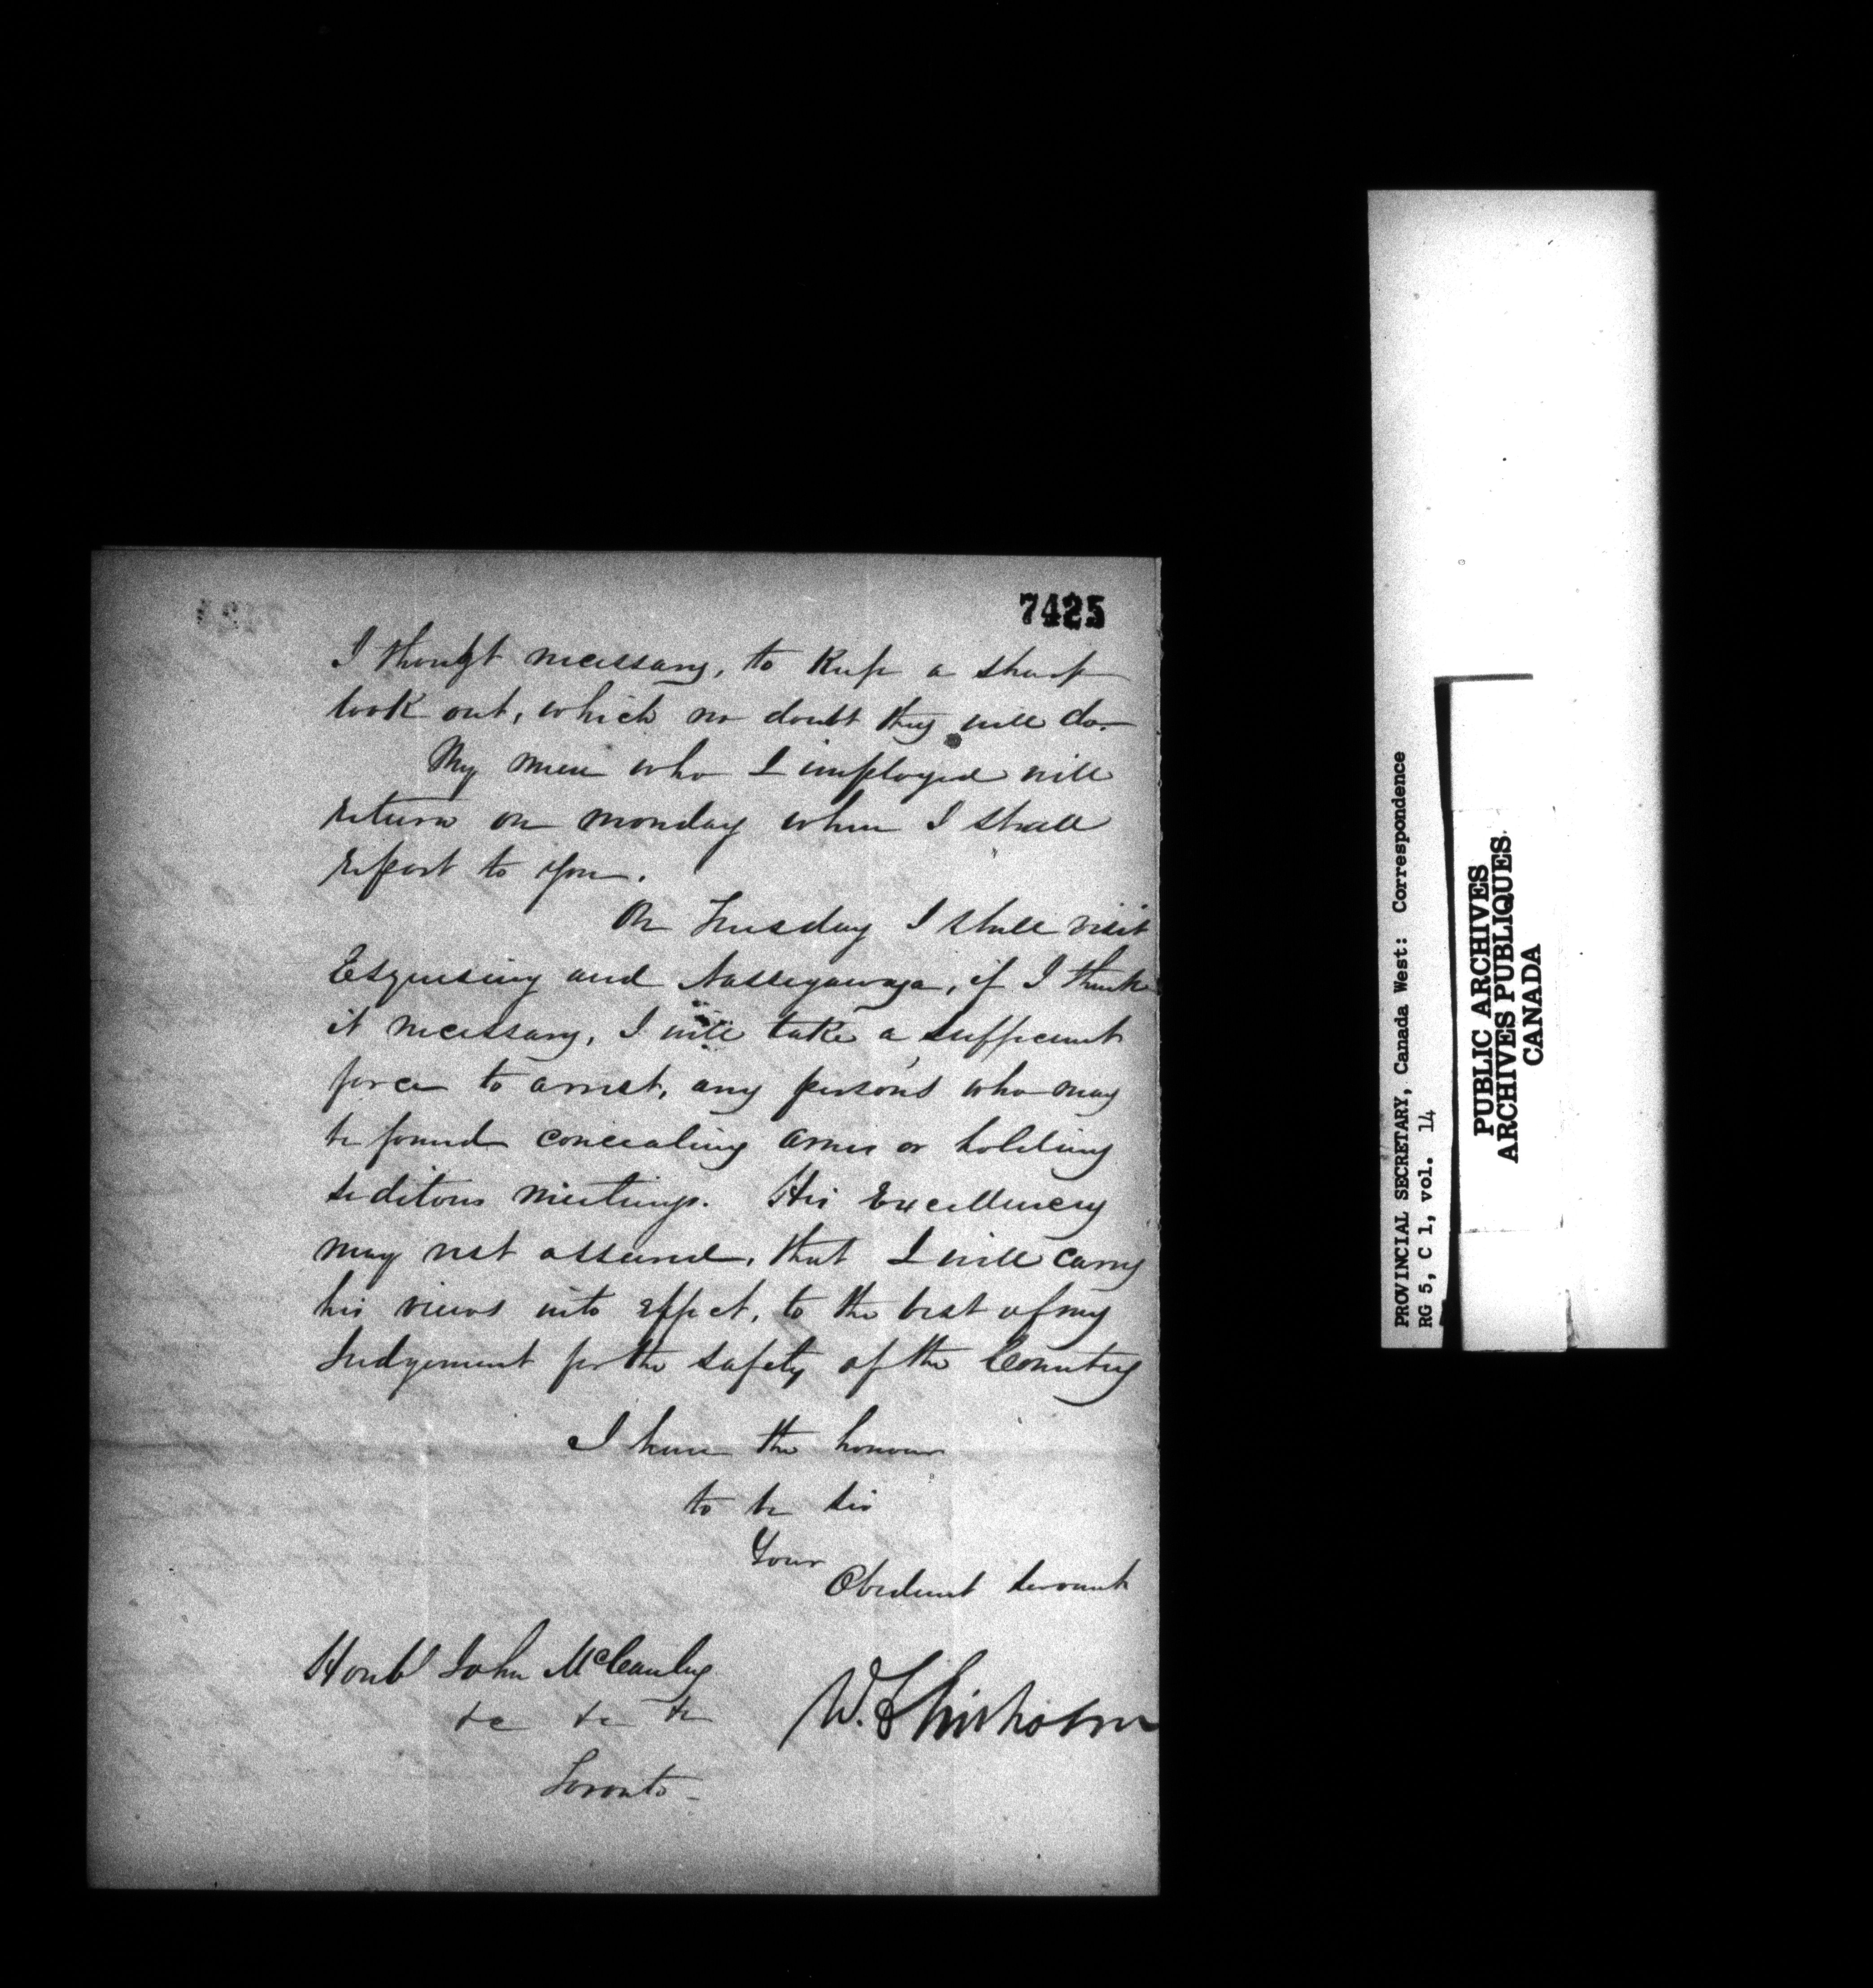 7425
I thought necessary, to Keep a sharp
look out, which no doubt they will do.
My men who I imployed will
return on monday when I shall
report to you.
On Tuesday I shall visit
Esquesing and Nassegawaya, if I think
it necessary, I will take a sufficent
force to arrest, any persons who may
be found concealing arms or holding
seditous meetings. His Excellencey
may rest assured, that I will carry
his views into effect, to the best of my
Judgement for the safety of the Country
I have the honour
to be Sir
Your
Obedient Servant
W. Chisholm
Honbl John McCauley
&c &c &c
Toronto -
PROVINCIAL SECRETARY, Canada West: Correspondence
RG 5, C 1, vol. 14
PUBLIC ARCHIVES
ARCHIVES PUBLIQUES
CANADA